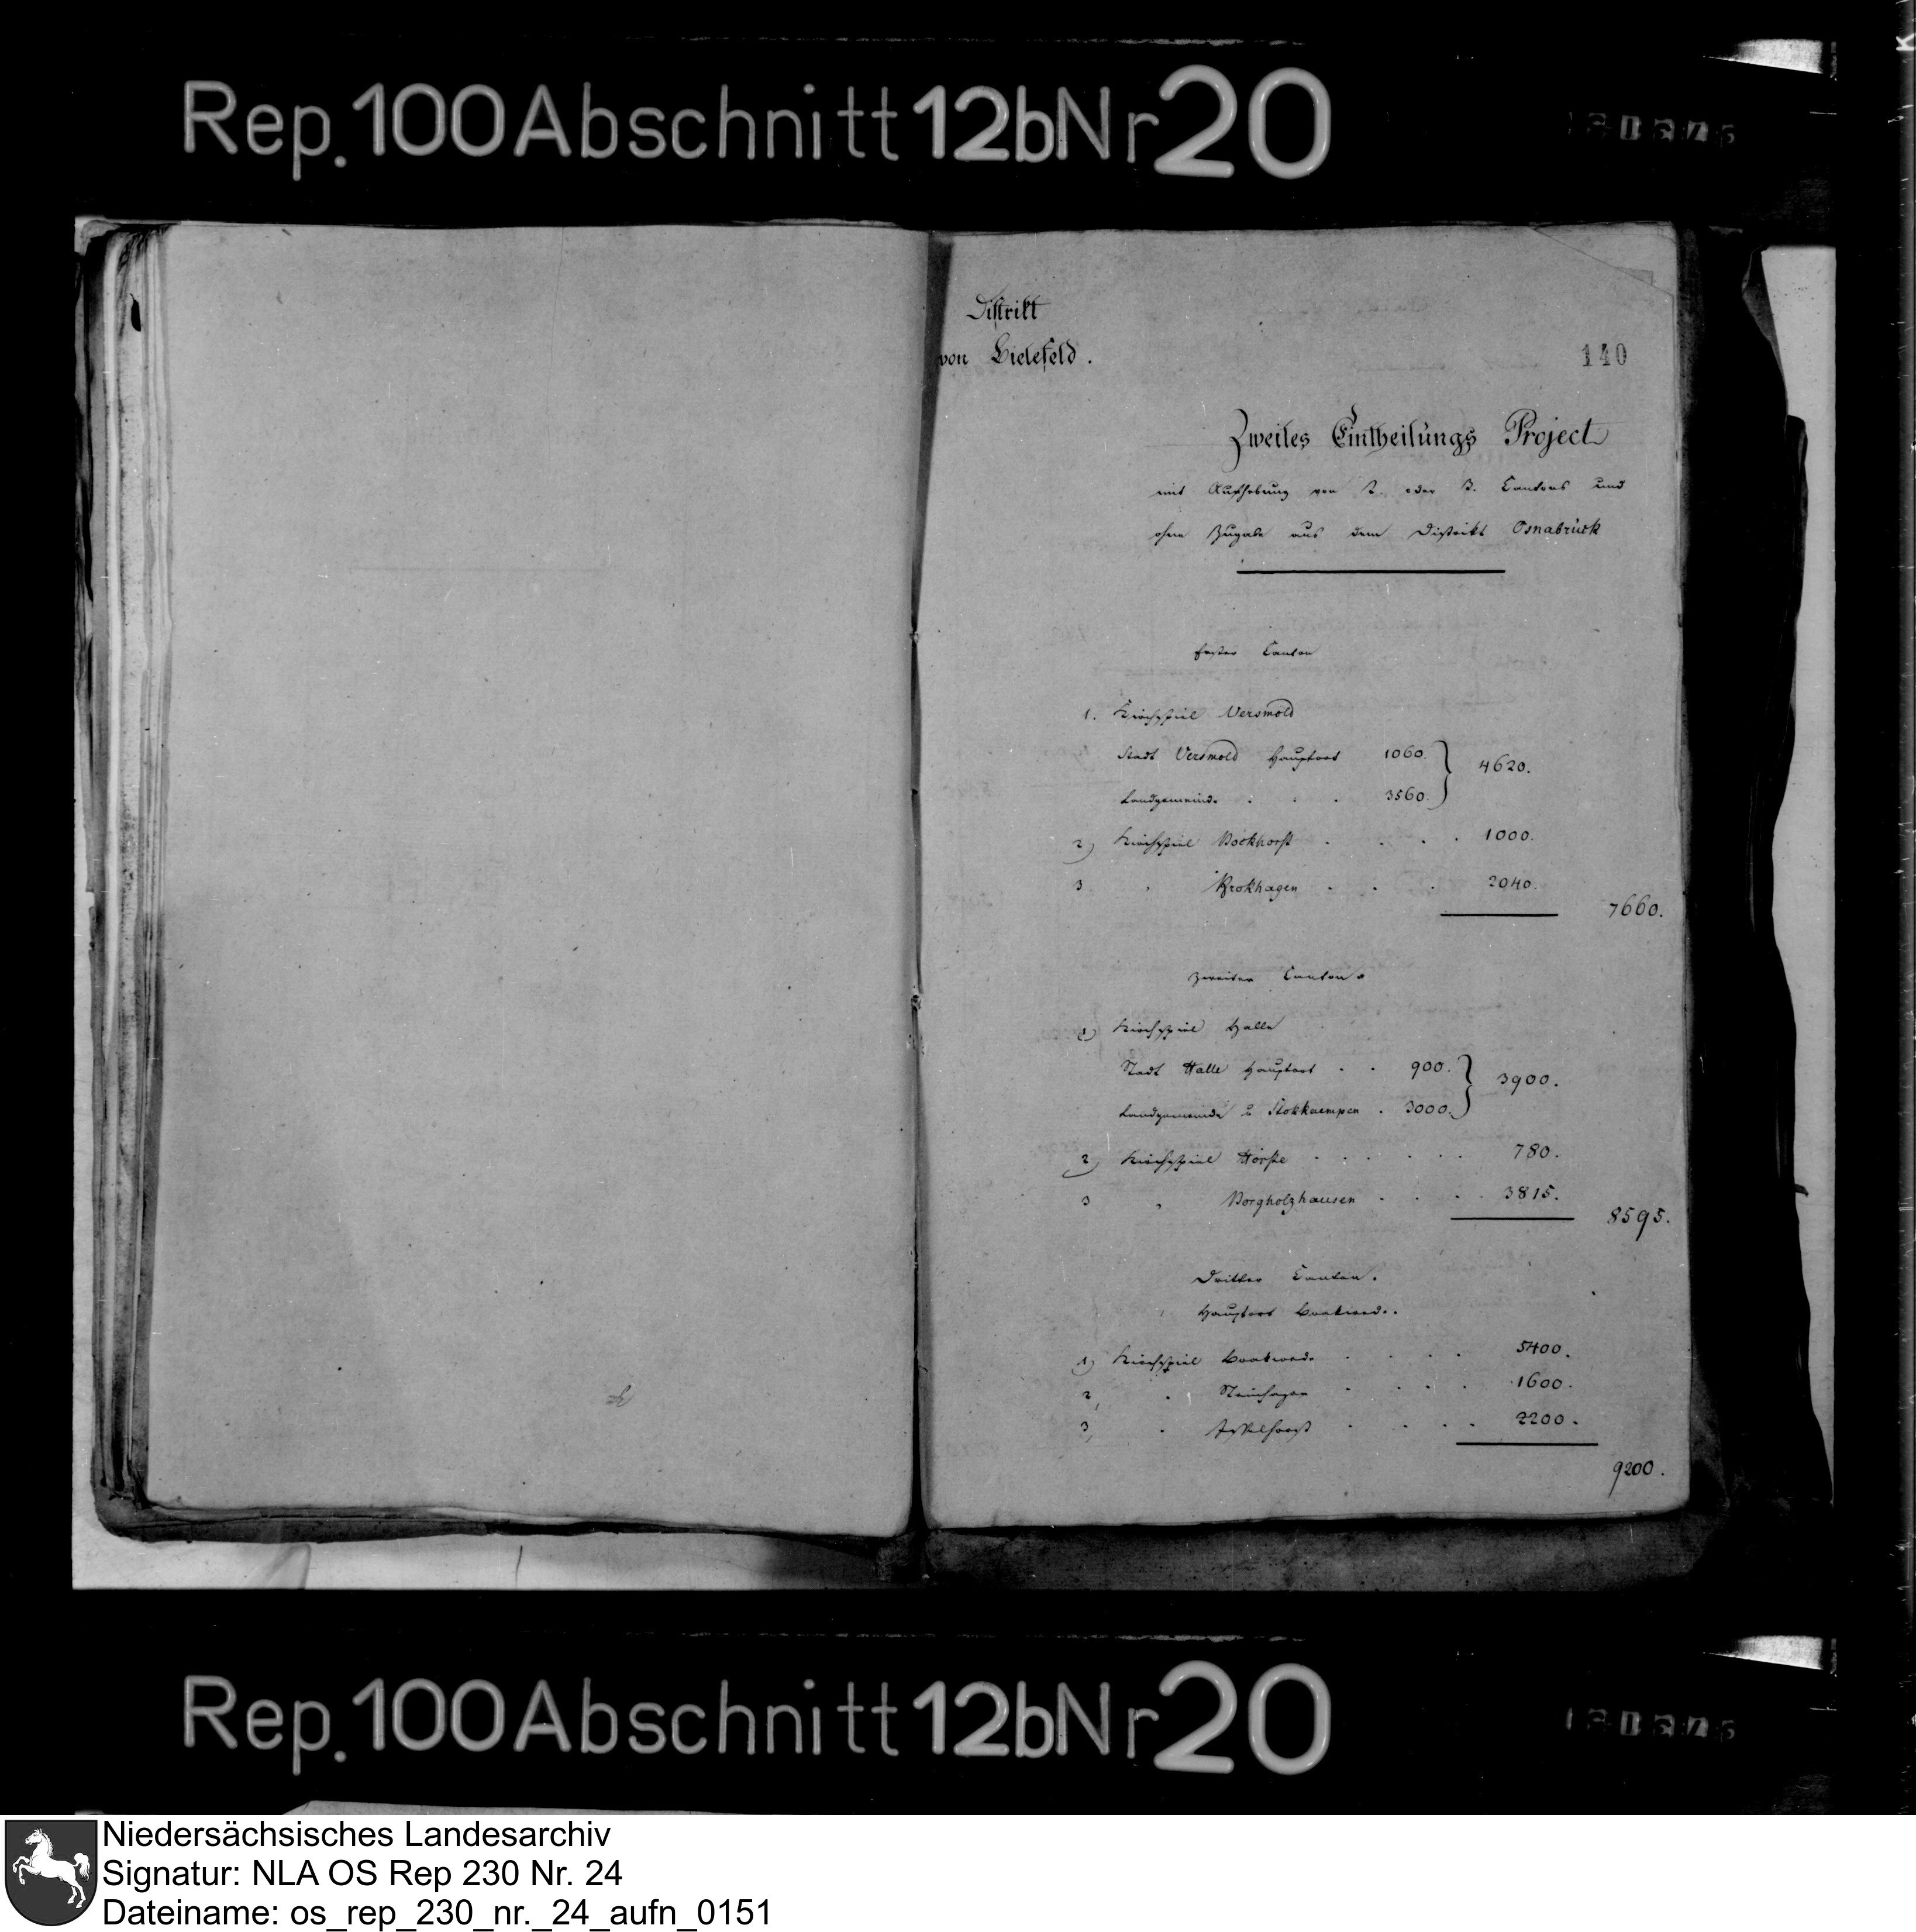 Rep. 100 Abschnitt 12b Nr 20
Distrikt
von Bielefeld.
140
Zweites Eintheilungs Project
mit Aufhebung von 2. oder 3. Cantons und
ohne Zugabe aus dem Distrikt Osnabrück
Erster Canton
1. Kirchspiel Versmold
Stadt Versmold Hauptort 1060. } 4620.
Landgemeinde . . . 3560.
2) Kirchspiel Bockhorst . . . . 1000.
3 " Brokhagen . . . 2040.
7660.
Zweiter Canton.
1) Kirchspiel Halle
Stadt Halle Hauptort . . 900. } 3900.
Landgemeinde & Stokkaempen . 3000.
2) Kirchspiel Hörste . . . . . . 780.
3 " Borgholzhausen . . . . 3815.
8595.
Dritter Canton.
Hauptort Brakwede.
1) Kirchspiel Brakwede . . . . 5400.
2, " Steinhagen . . . . 1600.
3, " Isselhorst . . . . 2200.
9200.
Rep. 100 Abschnitt 12b Nr 20
Niedersächsisches Landesarchiv
Signatur: NLA OS Rep 230 Nr. 24
Dateiname: os_rep_230_nr._24_aufn_0151